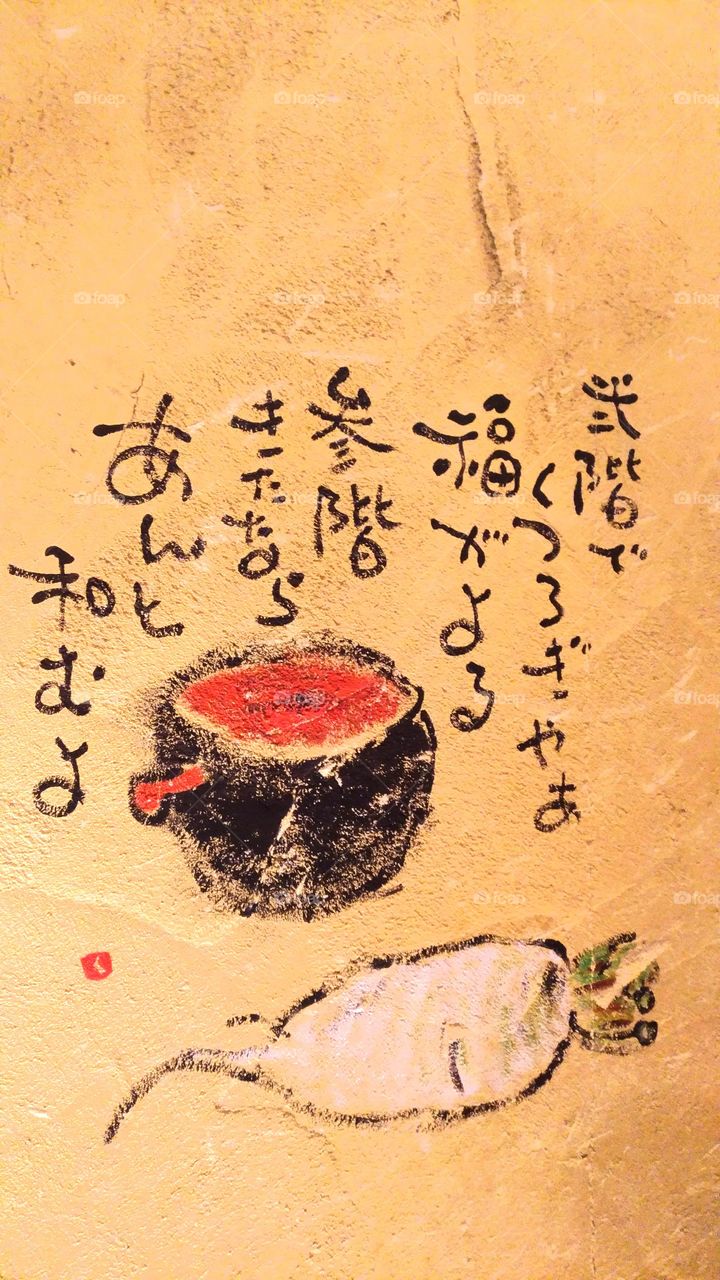 弐階で
くつろぎゃあ
福がよる
参階
きたなら
あんと
和むよ
く
foap